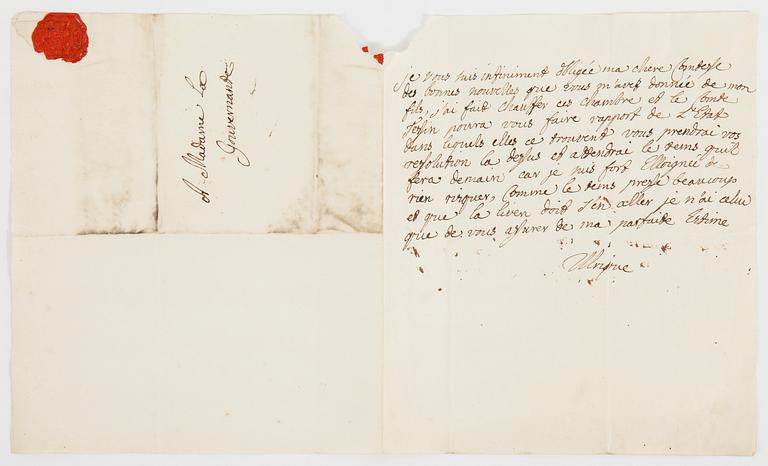 A Madame La
Gouvernande
je vous suis infiniment obligée ma chere Comtesse
des bonnes nouvelles que vous m'avez donnée de mon
fils, j'ai fait chauffer ces chambre et le Comte
Tessin poura vous faire rapport de L'Etat
dans lequels elles ce trouvent vous prendrai vos
resolution la desus et attendrai le tems qu'il
fera demain car je suis fort Elloignée de
rien risquer, Comme le tems presse beaucoup
et que la liven doit s'en aller je n'ai celui
que de vous assurer de ma parfaite Estime
Ulrique